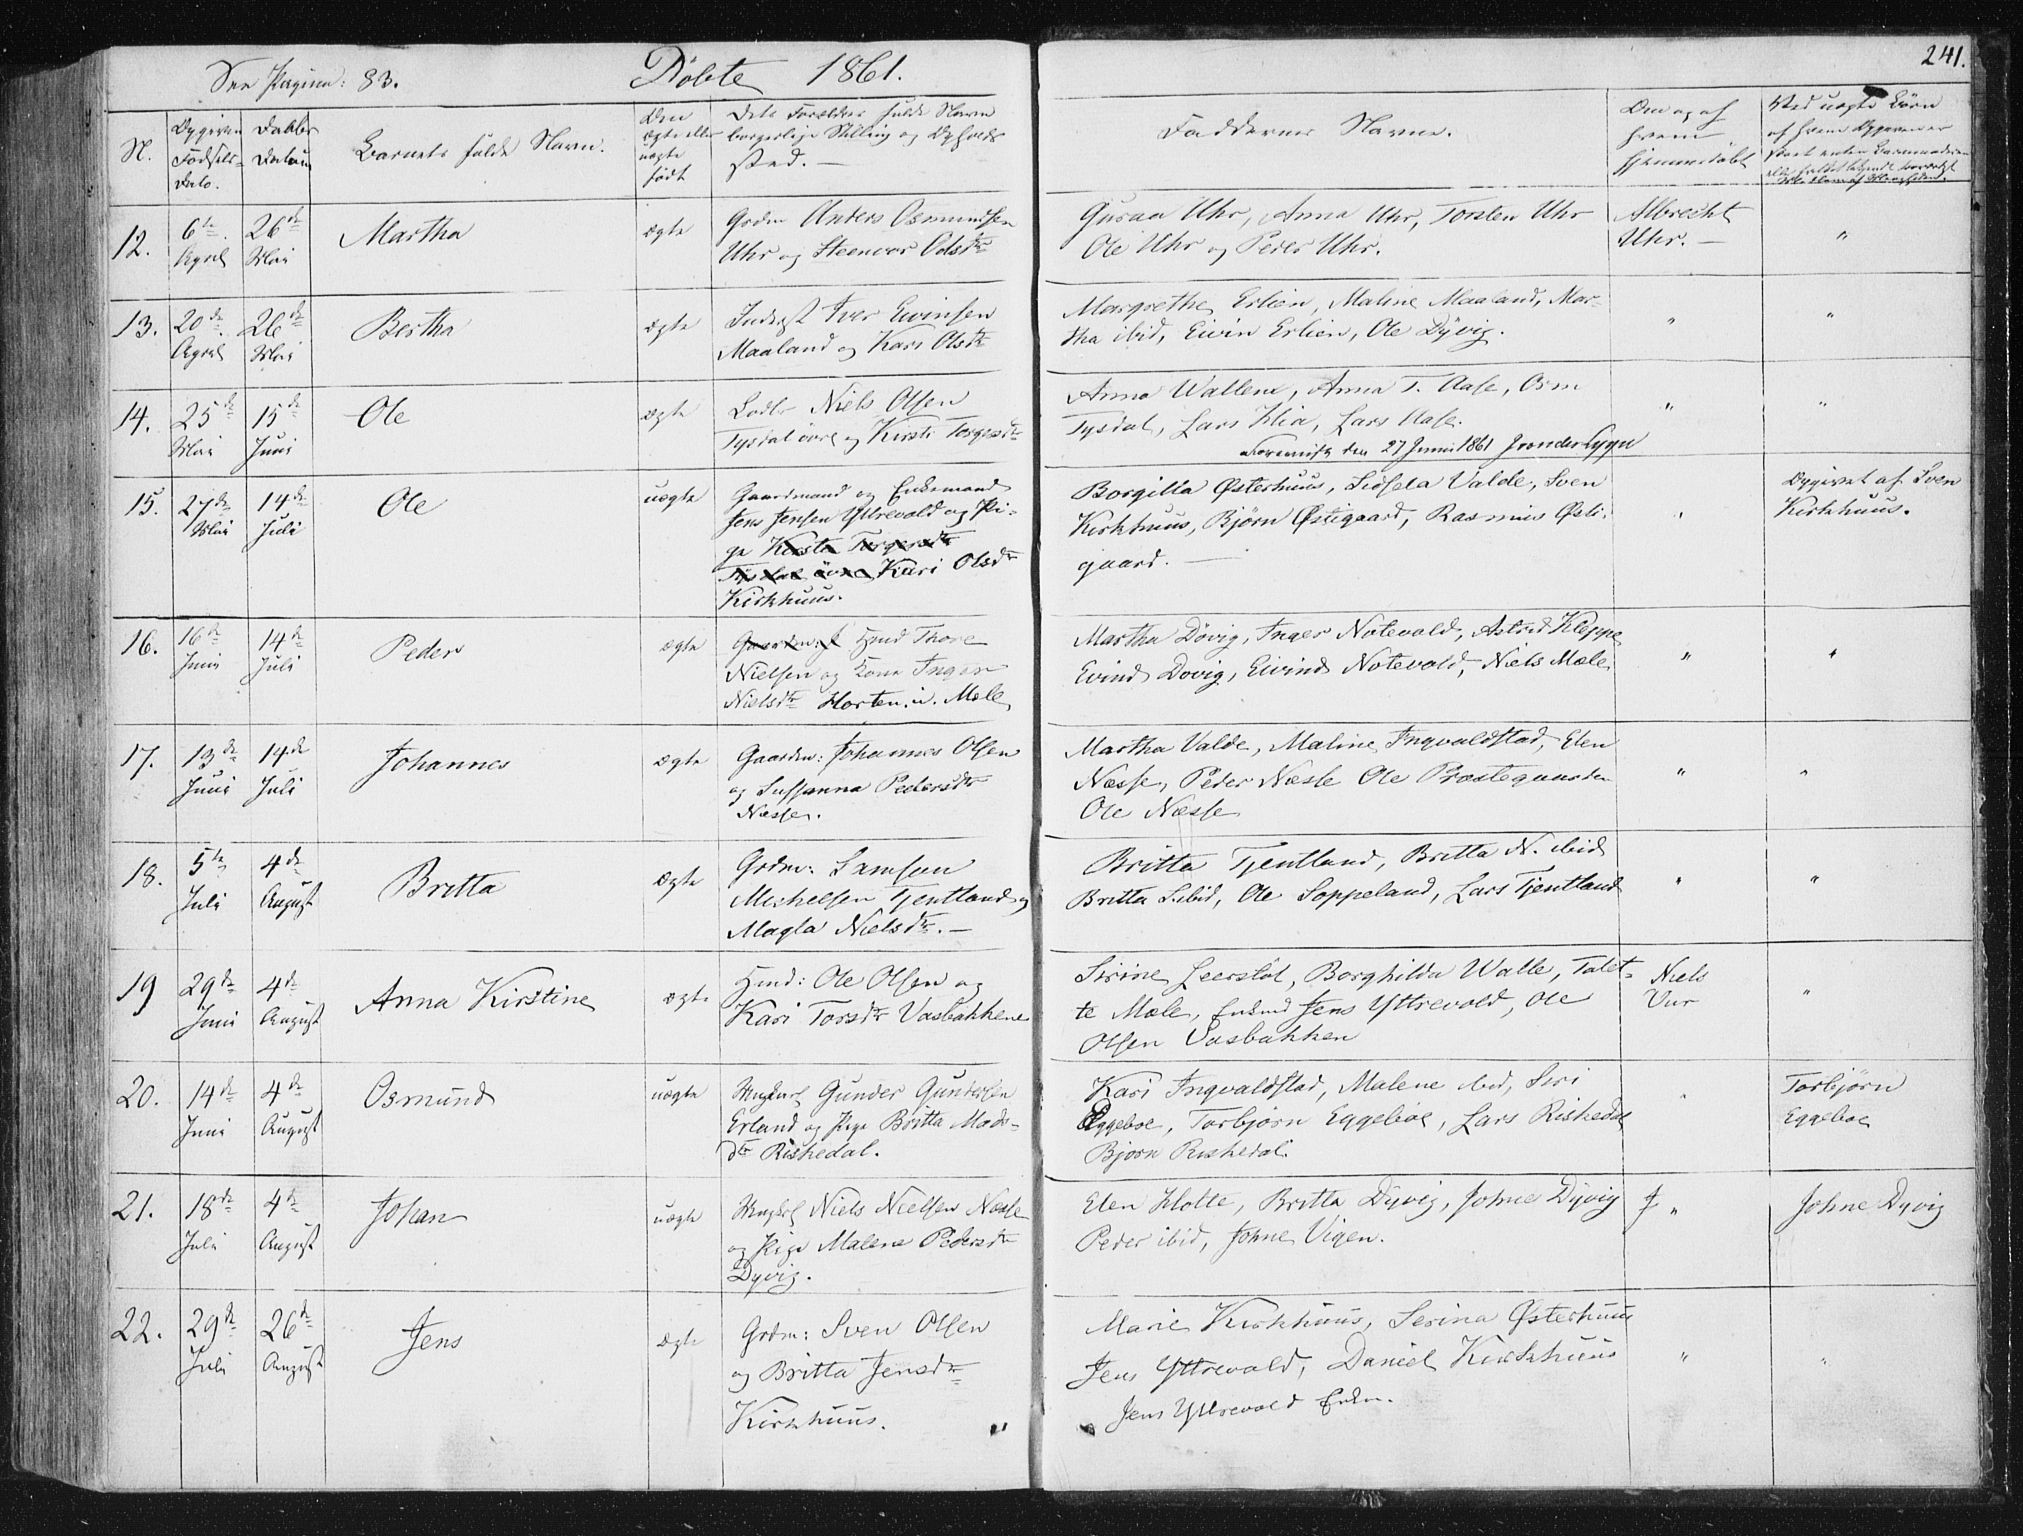 See Pagina: 83.
Döbte 1861.
241.
N.
Opgiven Fødsels-Dato.
Daabs Datum
Barnets fulde Navn.
Om ægte eller uægte født
Dets Forældres fulde Navn
borgerlige Stilling og Opholds
sted. —
Faddernes Navne.
Om og af
hvem
hjemmedøbt
Ved uægte Børn
af hvem Opgivelsen er
12. 6te April 26de Mai Martha ægte
Grdm Anders Osmundsen
Uhr og Steenvor Olsdtr
Guroa Uhr, Anna Uhr, Torsten Uhr
Ole Uhr og Peder Uhr.
Albrecht
Uhr. —
"
13. 20de April 26de Mai Bertha ægte
Inderst Iver Eivinsen
Maaland og Kari Olsdtr
Margrethe Erlien, Maline Maaland, Mar-
tha ibid, Eivin Erlien, Ole Dÿvig.
" "
14. 25de Mai 15de Juni Ole ægte
Niels Olsen
Tysdal övre og Kirsti Torgersdtr
Anna Wallem, Anna T. Aase, Osm
Tysdal, Lars Hia, Lars Aase.
" "
den 27 Juni 1861
15. 27de Mai 14de Juli Ole uægte
Gaardmand og Enkemand
Jens Jensen Yttrevold og Pi-
ge Kirsta Torgersdtr
Tysdal övre Kari Olsdtr
Kirkhuus.
Borgilla Østerhuus, Sidsela Valde, Sven
Kirkhuus, Bjørn Østegaard, Rasmus Øste-
gaard. —
"
Opgivet af Sven
Kirkhuus.
16. 16de Juni 14de Juli Peder ægte
Hmd Thore
Nielsen og Kone Inger
Nielsdtr Horten. u. Mæle
Martha Dövig, Inger Notevold, Astrid Kleppe
Evind Dovig, Eivind Notevold, Niels Mæle.
" "
17. 13de Juni 14de Juli Johannes ægte
Gaardm: Johannes Olsen
og Sussanna Pedersdtr
Næsse.
Martha Valde, Maline Ingvaldstad, Elen
Næsse, Peder Næsse Ole Præstegaarden
Ole Næsse
" "
18. 5te Juli 4de August Britta ægte
Grdm: Samson
Michelsen Tjentland og
Magla Nielsdtr. —
Britta Tjentland, Britta N. ibid
Britta S. ibid, Ole Soppeland, Lars Tjentland
" "
19 29de Juni 4de August Anna Kirstine ægte
Hmd: Ole Olsen og
Kari Torsdtr Vasbakkene
Sirine Leerstöl, Borghilda Walle, Talet-
te Mæle, Enkmd Jens Yttrevold, Ole
Olsen Vasbakken
Niels
Uur
"
20. 14de Juni 4de August Osmund uægte
Ungkarl Gunder Gundersen
Erland og Pige Britta Mads-
dtr Riskedal.
Kari Ingvaldstad, Malene ibid, Siri
Eggeboe, Torbjørn Eggeboe, Lars Riskedal
Bjørn Riskedal.
"
Torbjørn
Eggeboe
21. 18de Juli 4de August Johan uægte
Ungkarl Niels Nielsen Næsse
og Pige Malene Pedersdtr
Dyvig.
Elen Holte, Britta Dÿvig, Johne Dÿvig
Peder ibid, Johne Vigen.
"
Johne Dyvig
22. 29de Juli 26de August Jens ægte
Grdm: Sven Olsen
og Britta Jensdtr
Kirkhuus.
Marie Kirkhuus, Serina Østerhuus
Jens Yttrevold, Daniel Kirkhuus
Jens Yttrevold Enkm.
" "